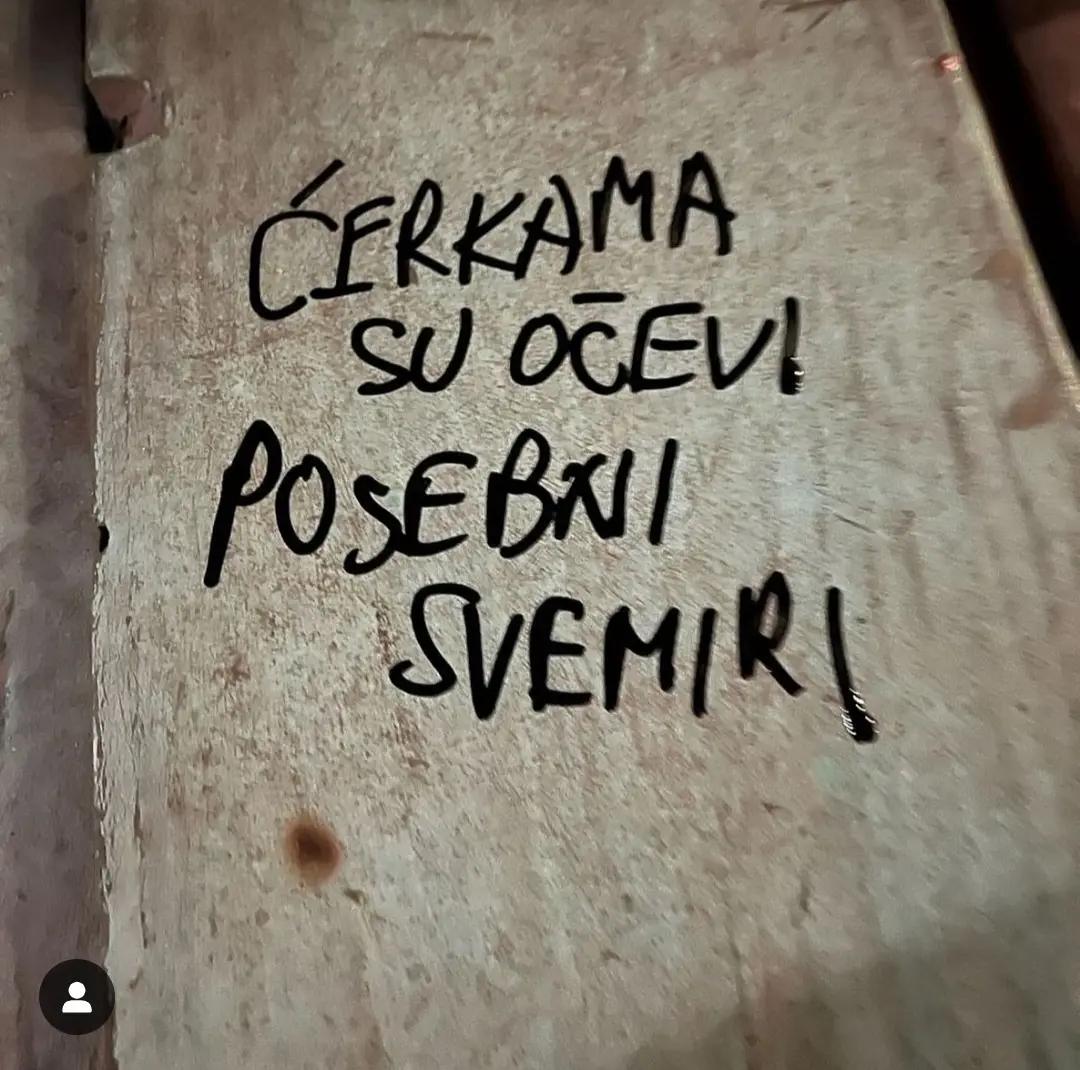 ĆERKAMA
SU OČEVI
POSEBNI
SVEMIRI